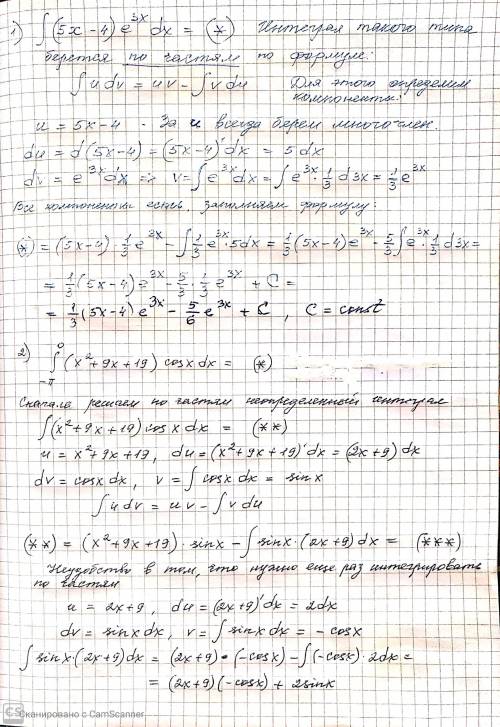 1) ∫(5x-4)e^{3x} dx = (*) Интеграл такого типа
берется по частям по формуле:
∫u dv = uv - ∫v du Для этого определим
компоненты:
u = 5x-4 - За u всегда берем многочлен.
du = d(5x-4) = (5x-4)' dx = 5 dx
dv = e^{3x} dx => v = ∫e^{3x} dx = ∫e^{3x} · 1/3 d3x = 1/3 e^{3x}
Все компоненты есть, заполняем формулу:
(*) = (5x-4) · 1/3 e^{3x} - ∫1/3 e^{3x} · 5dx = 1/3 (5x-4)e^{3x} - 5/3 ∫e^{3x} · 1/3 d3x =
= 1/3 (5x-4)e^{3x} - 5/3 · 1/3 e^{3x} + C =
= 1/3 (5x-4)e^{3x} - 5/6 e^{3x} + C , C = const
2) ∫_{-π}^{0} (x²+9x+19) cosx dx = (*)
Сначала решаем по частям неопределенный интеграл
∫(x²+9x+19) cosx dx = (**)
u = x²+9x+19, du = (x²+9x+19)' dx = (2x+9) dx
dv = cosx dx, v = ∫cosx dx = sinx
∫u dv = uv - ∫v du
(**) = (x²+9x+19) · sinx - ∫sinx · (2x+9) dx = (***)
Неудобство в том, что нужно еще раз интегрировать
по частям
u = 2x+9, du = (2x+9)' dx = 2dx
dv = sinx dx, v = ∫sinx dx = -cosx
∫sinx · (2x+9) dx = (2x+9) · (-cosx) - ∫(-cosx) · 2dx =
= (2x+9)(-cosx) + 2sinx
CS Сканировано с CamScanner